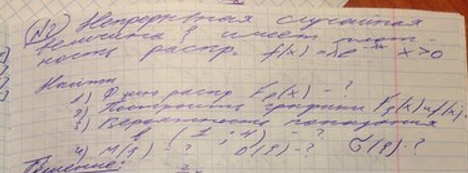 №2 Непрерывная случайная
величина ξ имеет плот-
ность распр. f(x)=λe^-λx x>0
Найти
1) Ф-цию распр F_ξ(x) - ?
2) Построить графики F_ξ(x) и f(x).
3) Вероятность попадания
в (1; 4) - ?
4) M(ξ) - ? D(ξ) - ? σ(ξ) - ?
Решение: